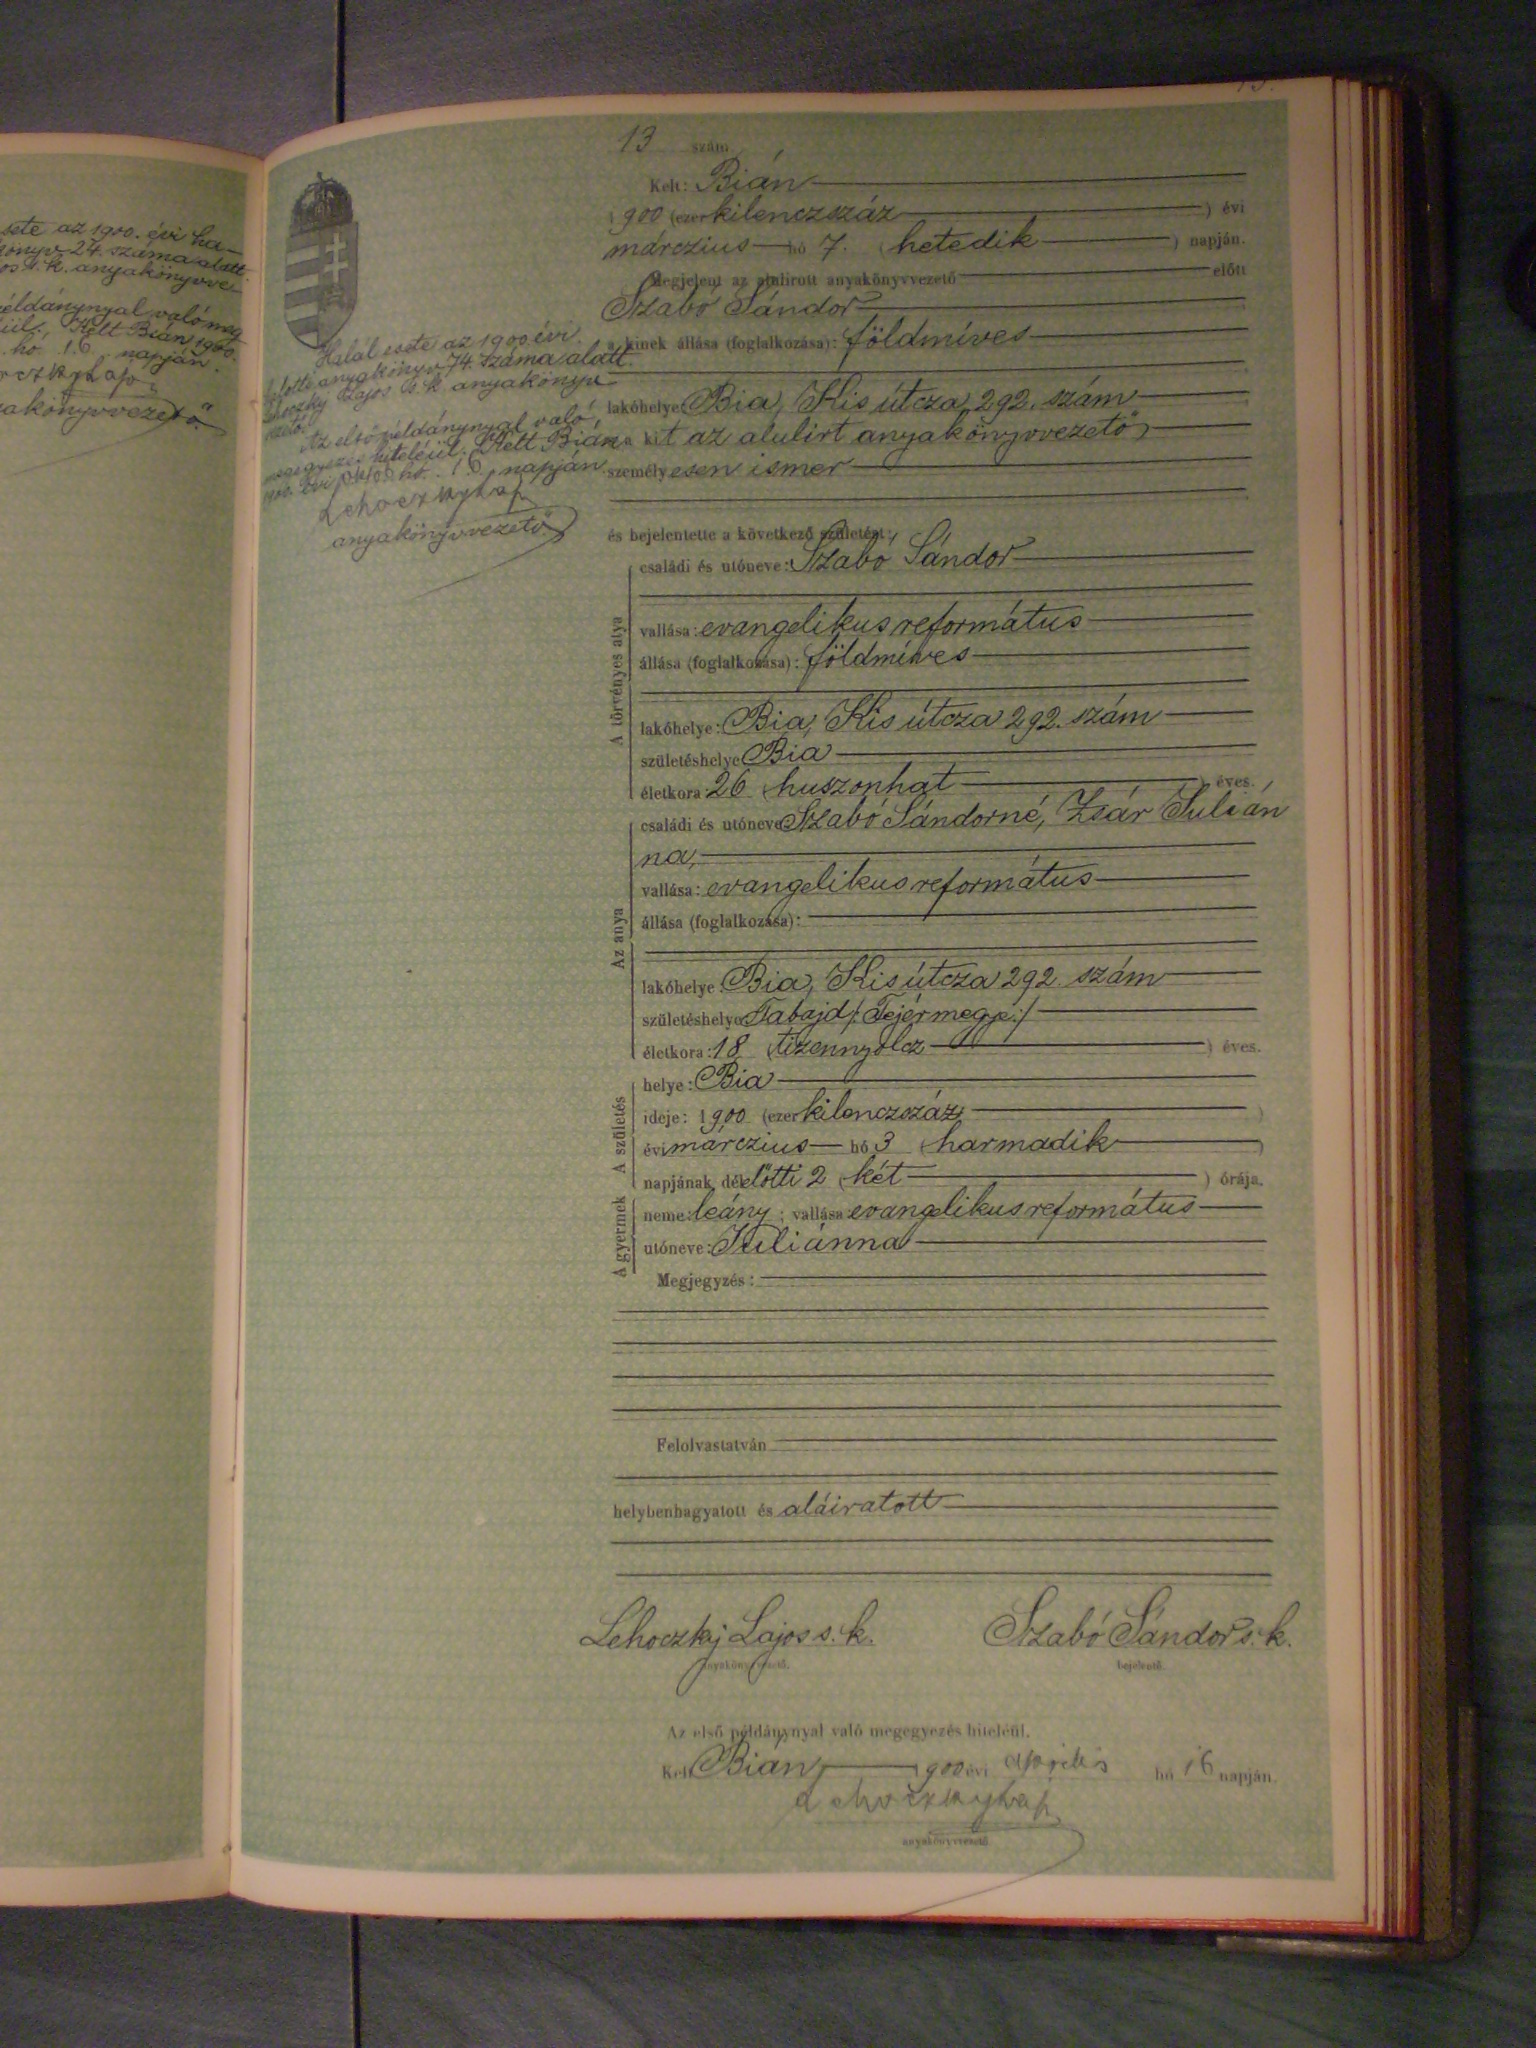 sete az 1900. évi ha-
könyv 24. száma alatt.
os s. k. anyakönyvve-
éldánynyal való meg
ül., Kelt Bián 1900.
hó. 16 napján.
akönyvvezető.
Halál esete az 1900. évi
halotti anyakönyv 74. száma alatt.
Lehoczky Lajos s. k. anyakönyv
vezető.
Az első példánynyal való
megegyezés hiteléül. Kelt Bián
1900. évi hó. 16 napján.
Lehoczky Laj
anyakönyvvezető.
13.
13 szám
Kelt: Bián
1900 (ezer kilenczszáz ) évi
márczius hó 7. ( hetedik ) napján.
Megjelent az alulirott anyakönyvvezető előtt
Szabó Sándor
a kinek állása (foglalkozása): földmíves
lakóhelye: Bia, Kis útcza 292. szám
a kit az alulirt anyakönyvvezető,
személyesen ismer
és bejelentette a következő születést:
A törvényes atya
családi és utóneve: Szabó Sándor
vallása: evangelikus református
állása (foglalkozása): földmíves
lakóhelye: Bia, Kis útcza 292. szám
születéshelye Bia
életkora: 26 (huszonhat ) éves.
Az anya
családi és utóneve Szabó Sándorné, Zsár Julián
na,
vallása: evangelikus református
állása (foglalkozása):
lakóhelye: Bia, Kis útcza 292. szám
születéshelye Tabajd /: Fejérmegye:/
életkora: 18 (tizennyolcz ) éves.
A születés
helye: Bia
ideje: 1900 (ezer kilenczszáz )
évi márczius hó 3 (harmadik )
napjának délelőtti 2 (két ) órája.
A gyermek
neme: leány ; vallása: evangelikus református
utóneve: Juliánna
Megjegyzés:
Felolvastatván
helybenhagyatott és aláiratott
Lehoczky Lajos s. k. Szabó Sándor s. k.
anyakönyvvezető. bejelentő.
Az első példánynyal való megegyezés hiteléül.
Kelt Bián, 1900 évi április hó 16 napján.
Lehoczky Laj
anyakönyvvezető